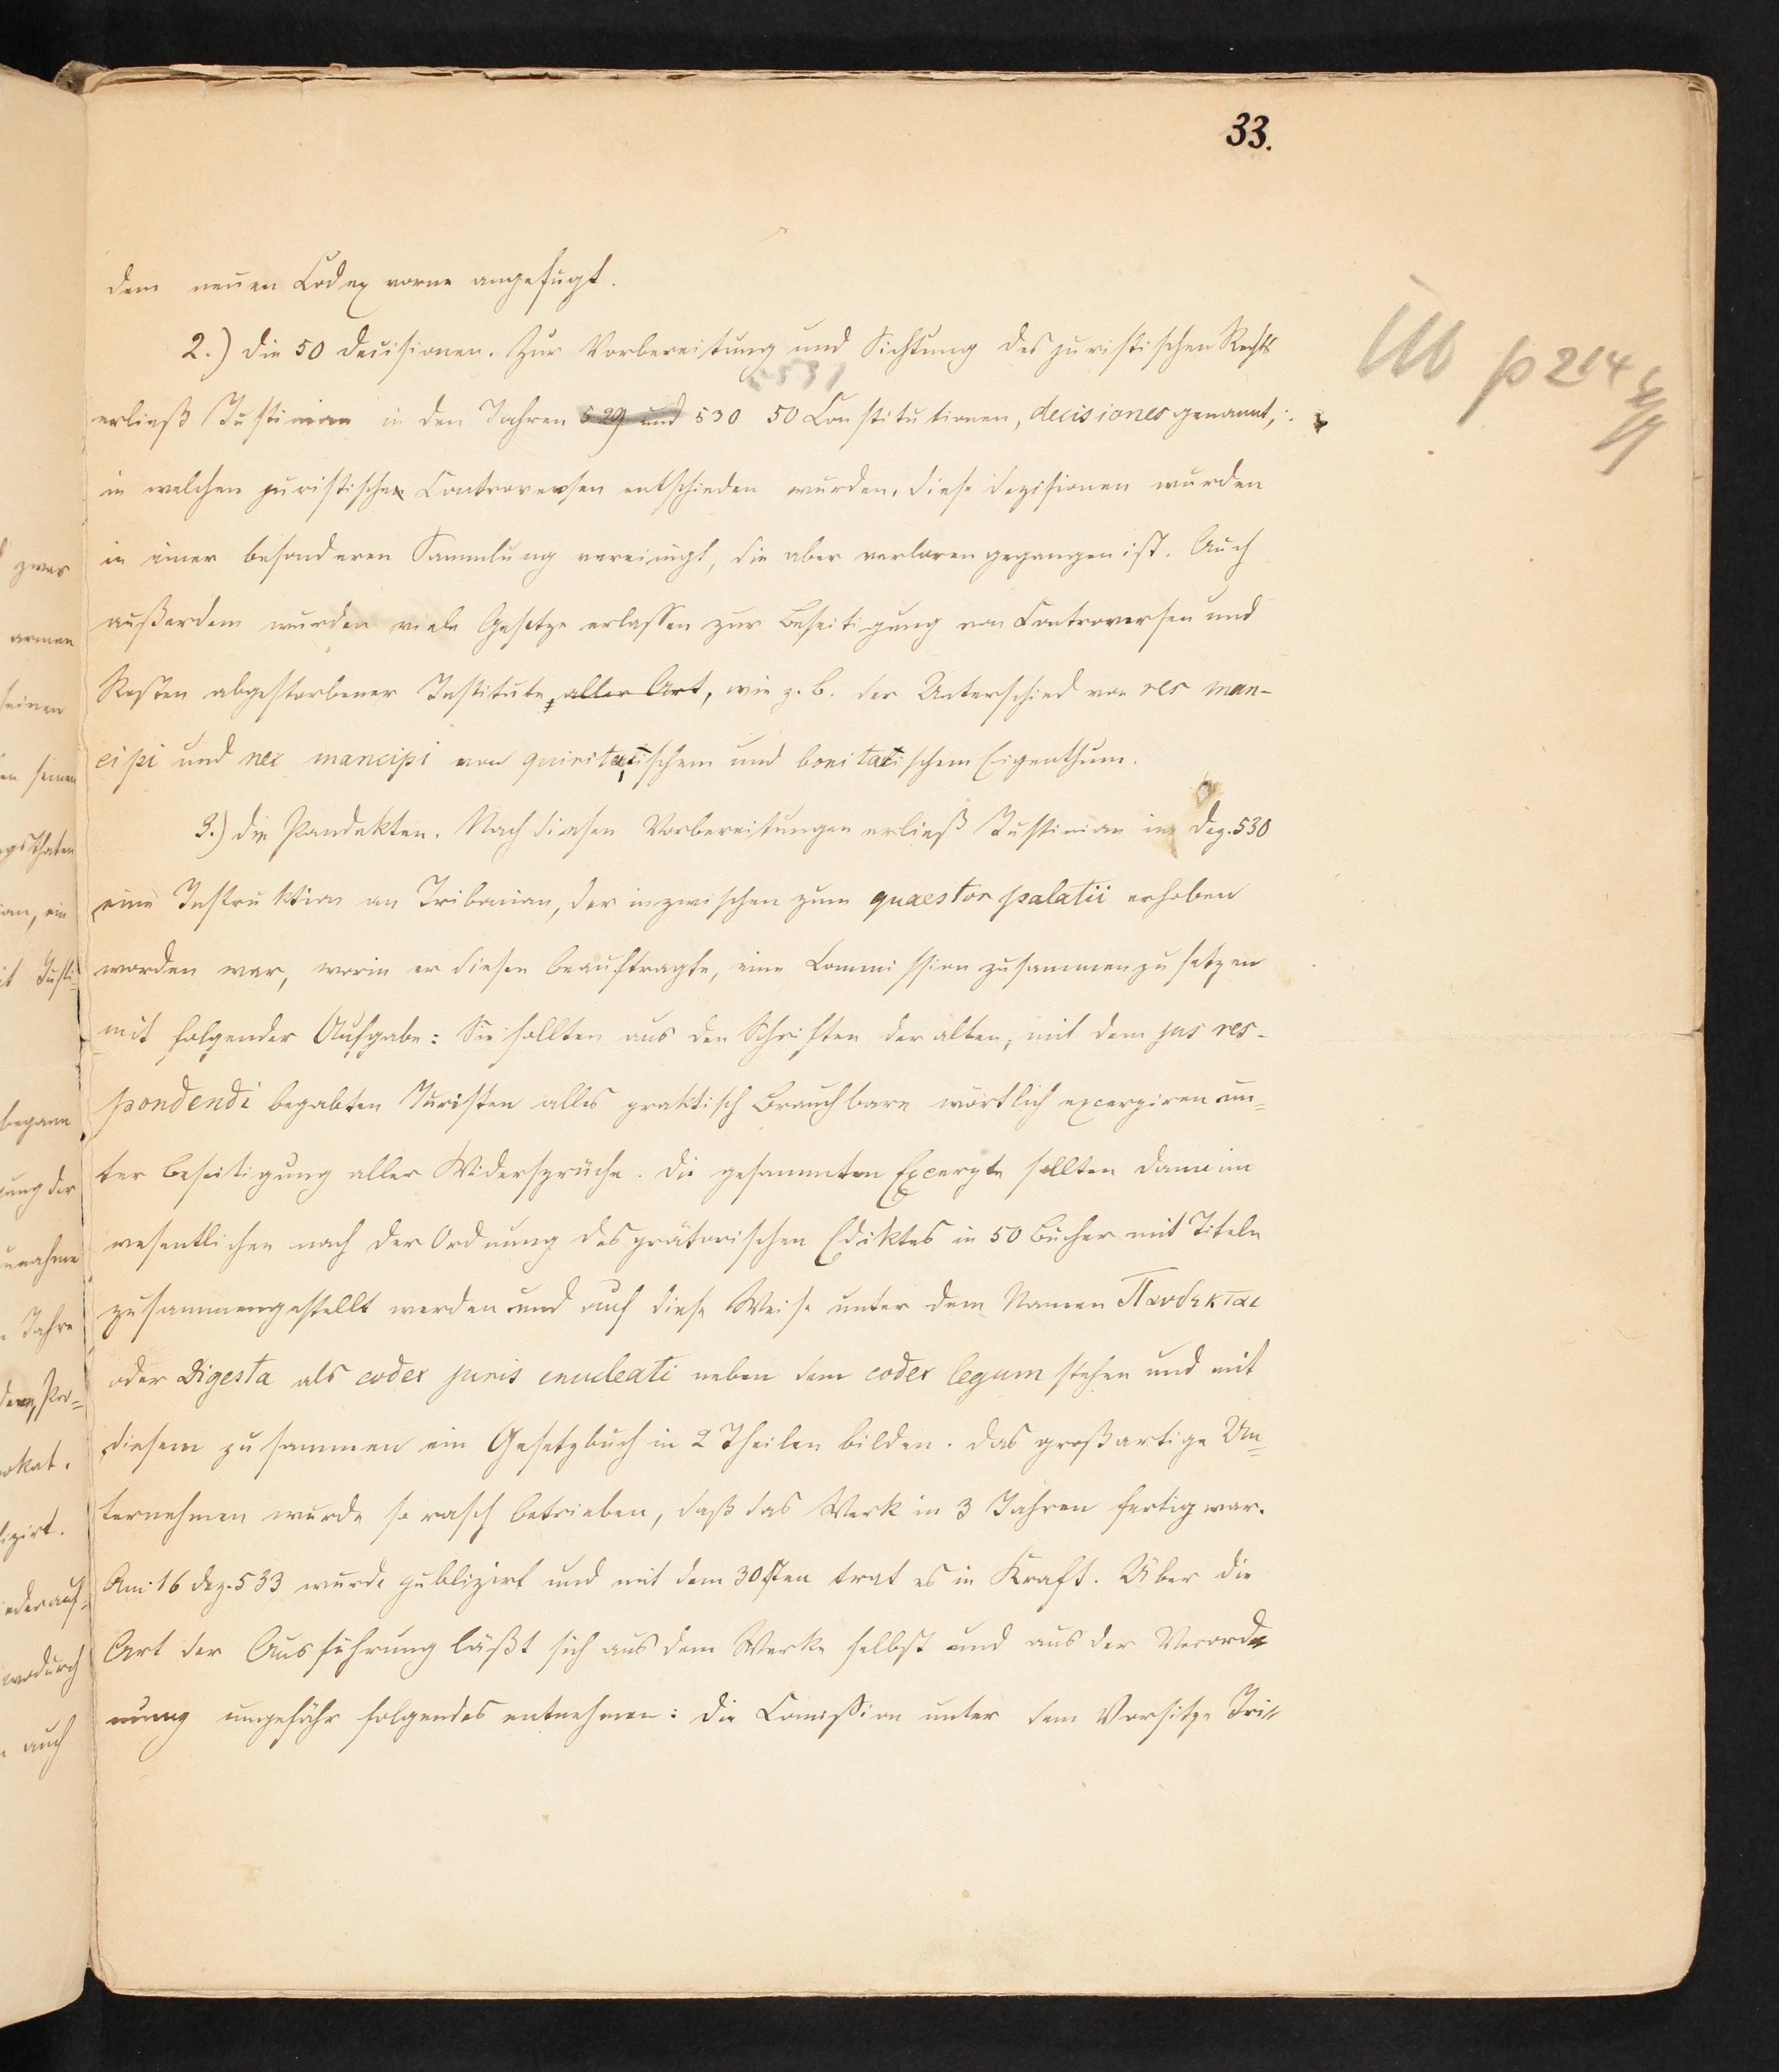 33.
dem neuen Codex vorne angefügt.
2.) Die 50 Decisionen. Zur Vorbereitung und Sichtung des juristischen Rechts
531
erließ Justinian in den Jahren 529 und 530 50 Constitutionen, decisiones genannt,
in welchen juristische Controversen entschieden wurden. Diese Dezisionen wurden
in einer besonderen Sammlung vereinigt, die aber verloren gegangen ist. Auch
außerdem wurden viele Gesetze erlassen zur Beseitigung von Controversen und
Resten abgestorbener Institute, aller Art, wie z. B. der Unterschied von res man-
cipi und nec mancipi von quiritarischem und bonitarischem Eigenthum.
3.) Die Pandekten. Nach diesen Vorbereitungen erließ Justinian im Dez. 530
eine Instruktion an Tribonian, der inzwischen zum quaestor palatii erhoben
worden war, worin er diesen beauftragte, eine Commission zusammenzusetzen
mit folgender Aufgabe: Sie sollten aus den Schriften der alten, mit dem jus res-
pondendi begabten Juristen alles praktisch Brauchbare wörtlich excerpiren un=
ter Beseitigung aller Widersprüche. Die gesammten Excerpte sollten dann im
wesentlichen nach der Ordnung des prätorischen Ediktes in 50 Bücher mit Titeln
zusammengestellt werden und auf diese Weise unter dem Namen Πανδεκται
oder Digesta als codex juris enucleati neben dem codex legum stehen und mit
diesem zusammen ein Gesetzbuch in 2 Theilen bilden. Das großartige Un=
ternehmen wurde so rasch betrieben, daß das Werk in 3 Jahren fertig war.
Am 16 Dez. 533 wurde publizirt und mit dem 30sten trat es in Kraft. Über die
Art der Ausführung läßt sich aus dem Werke selbst und aus der Verord
nung ungefähr folgendes entnehmen: Die Comission unter dem Vorsitze Tri=
p 214
zwar
armen
seinen
seinen
Justi=
begann
der
Jahre
wodurch
auch